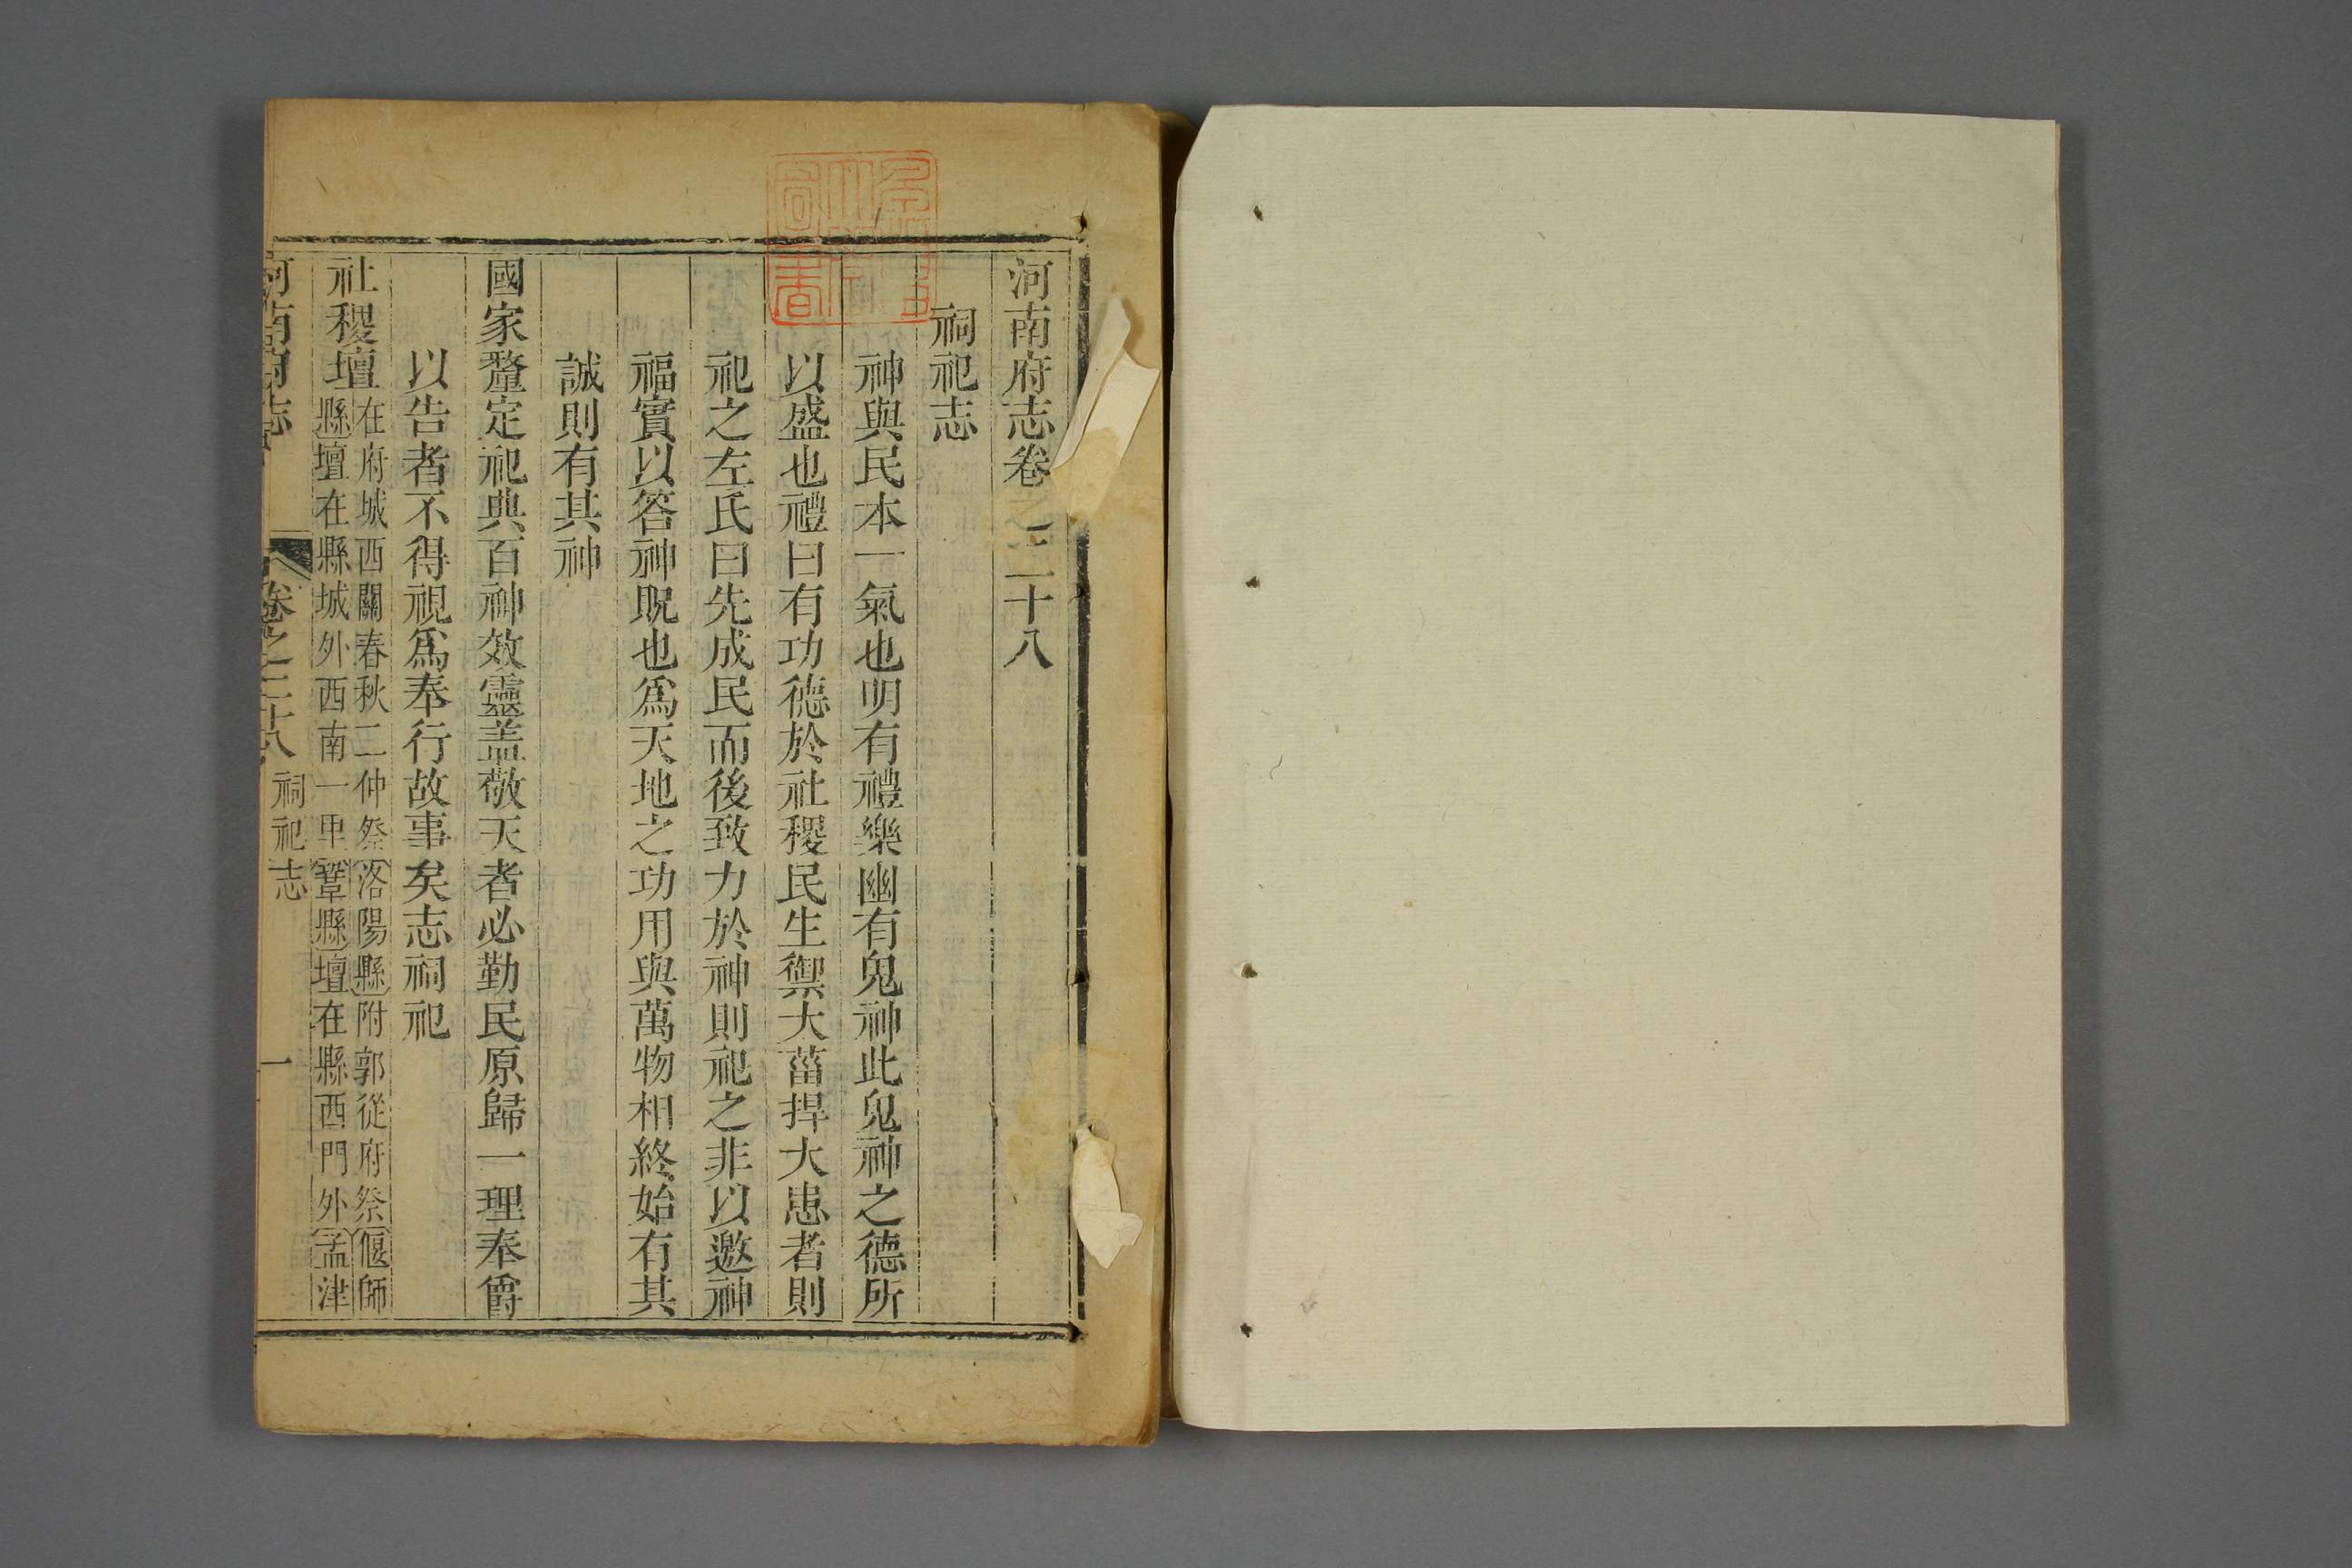 河南府志卷之二十八
祠祀志
神與民本一氣也明有禮樂幽有鬼神此鬼神之德所
以盛也禮曰有功德於社稷民生禦大菑捍大患者則
祀之左氏曰先成民而後致力於神則祀之非以邀神
福實以答神貺也爲天地之功用與萬物相終始有其
誠則有其神
國家釐定祀典百神效靈盖敬天者必勤民原歸一理奉爵
以告者不得視爲奉行故事矣志祠祀
社稷壇在府城西關春秋二仲祭洛陽縣附郭從府祭偃師
縣壇在縣城外西南一里鞏縣壇在縣西門外孟津
河南府志 卷之二十八 祠祀志 一